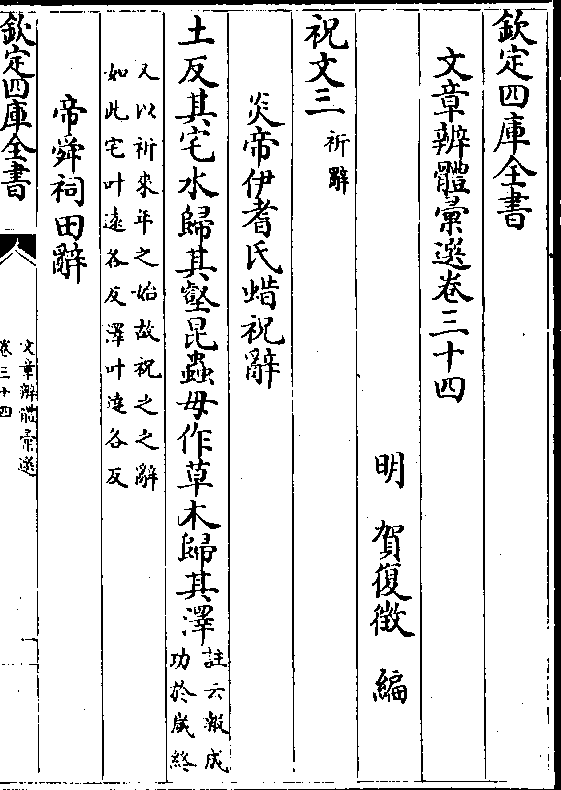 欽定四庫全書
文章辨體彙選卷三十四
明　賀復徵　編
祝文三 祈辭
炎帝伊耆氏蜡祝辭
土反其宅水歸其壑昆蟲毋作草木歸其澤 註云報成功於歲終
又以祈來年之始故祝之之辭
如此宅叶達各反澤叶達各反
帝舜祠田辭
欽定四庫全書
文章辨體彙選
卷三十四
一